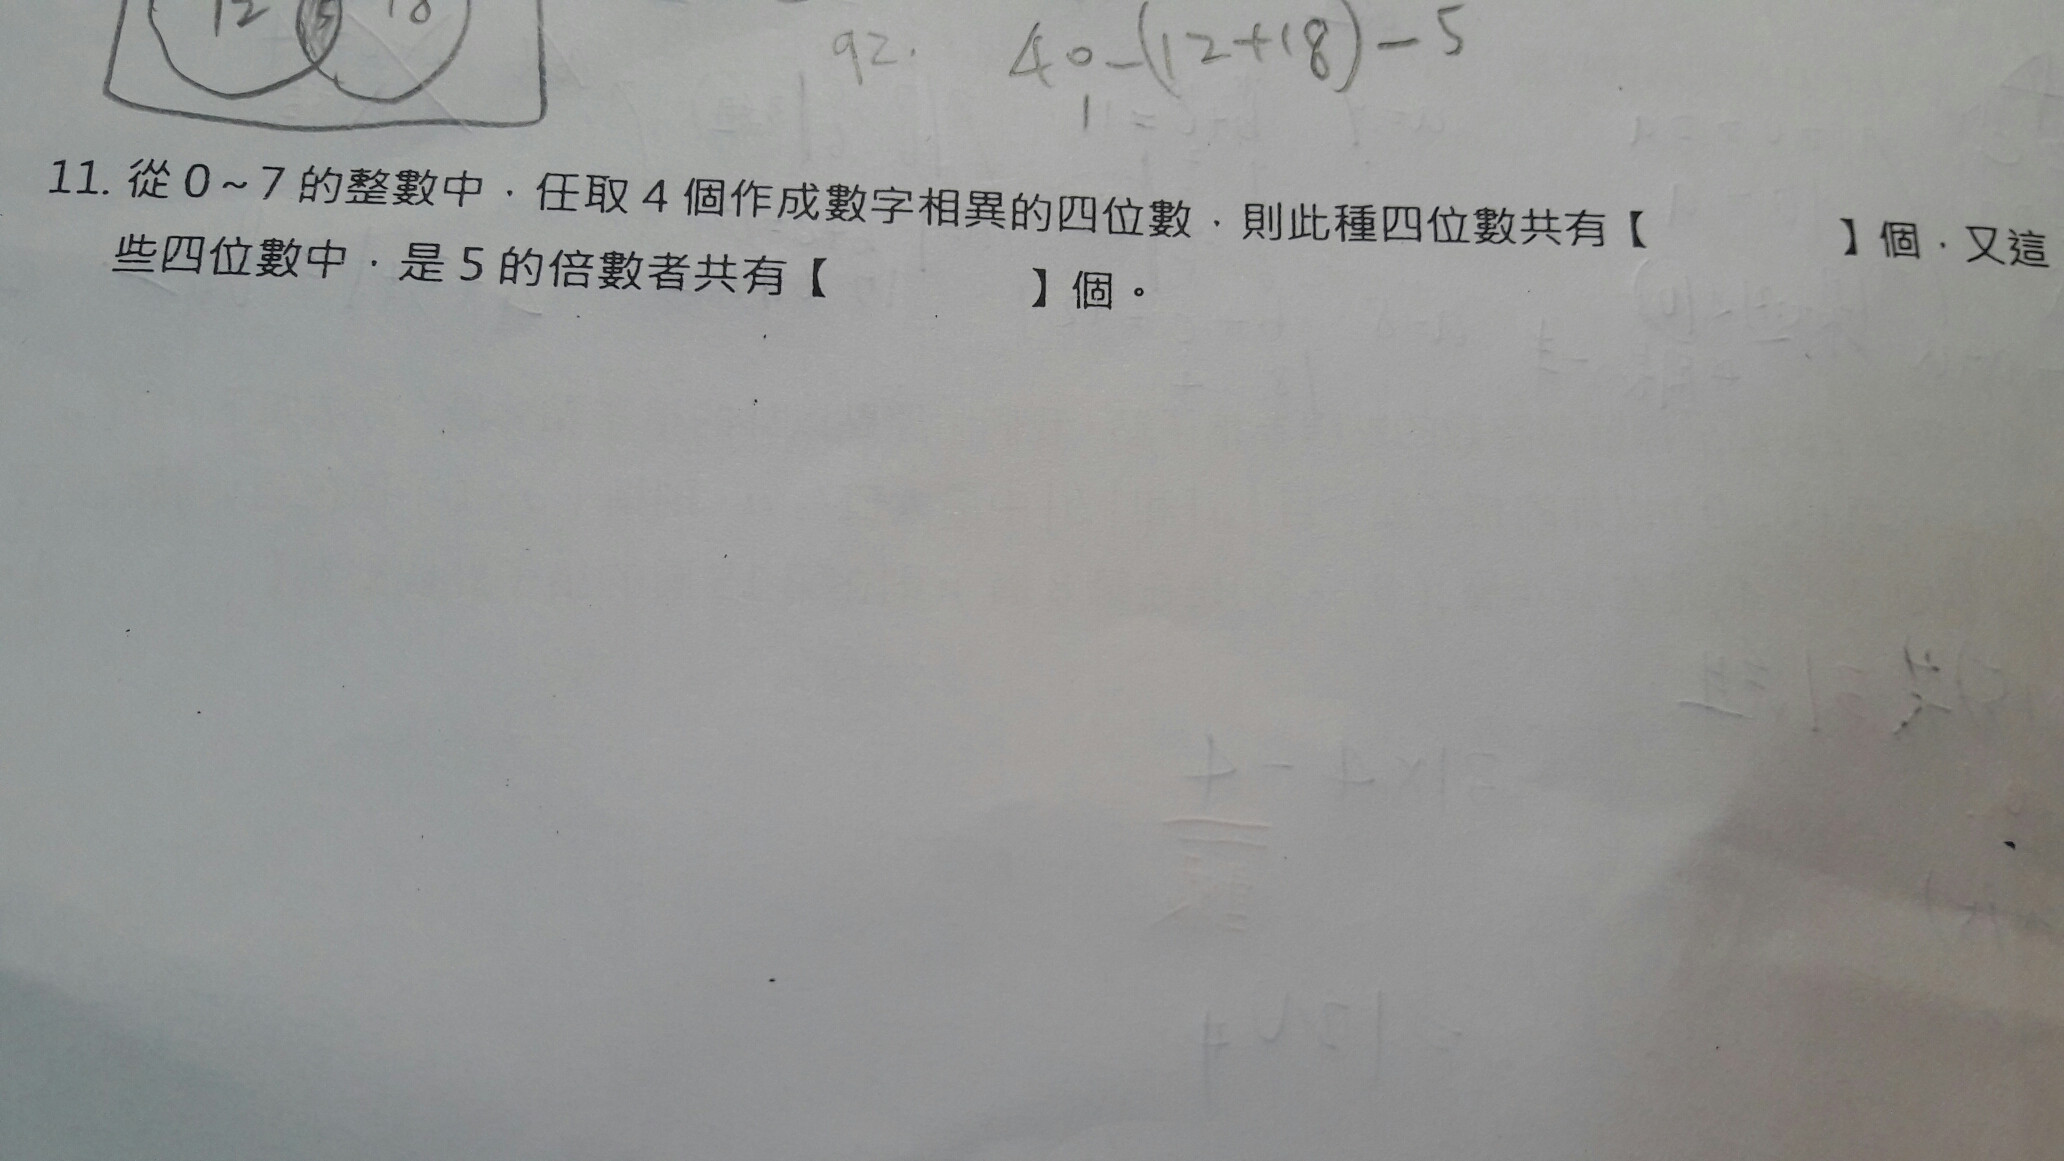 12 5 18
92. 40-(12+18)-5
11. 從 0 ~ 7 的整數中，任取 4 個作成數字相異的四位數，則此種四位數共有【 】個，又這
些四位數中，是 5 的倍數者共有【 】個。